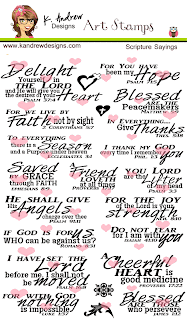 K. Andrew
Designs
Art Stamps
www.kandrewdesigns.com
Scripture Sayings
Delight
Yourself in
THE LORD
and He will give you
the desires of your
Heart
PSALM 37:4
For You have
been my
Hope
Blessed
ARE THE
Peacemakers
MATTHEW 5:9
For we live by
Faith
not by sight
2 CORINTHIANS 5:7
In Everything
Give
Thanks
To everything
there is a
Season
and a Purpose under Heaven
ECCLESIASTES 3:1
I thank my God
every time I remember
you
Saved
By GRACE
through FAITH
EPHESIANS 2:8
A
Friend
LOVETH
at all times
PROVERBS
You Lord
are the
Lifter
of my head
PSALM
He shall give
His
Angels
charge over thee
PSALM 91:11
For the joy
of the Lord is your
strength
If God is for us
WHO can be against us?
ROMANS
Do not fear
for I am with you
ISAIAH 41:10
I have set the
Lord
always
before me I shall not
be
moved
PSALM 16:8
A
Cheerful
HEART is
good medicine
PROVERBS 17:22
For with God
nothing
is impossible
LUKE 1:37
Blessed
are
those
who persevere
JAMES 1:12